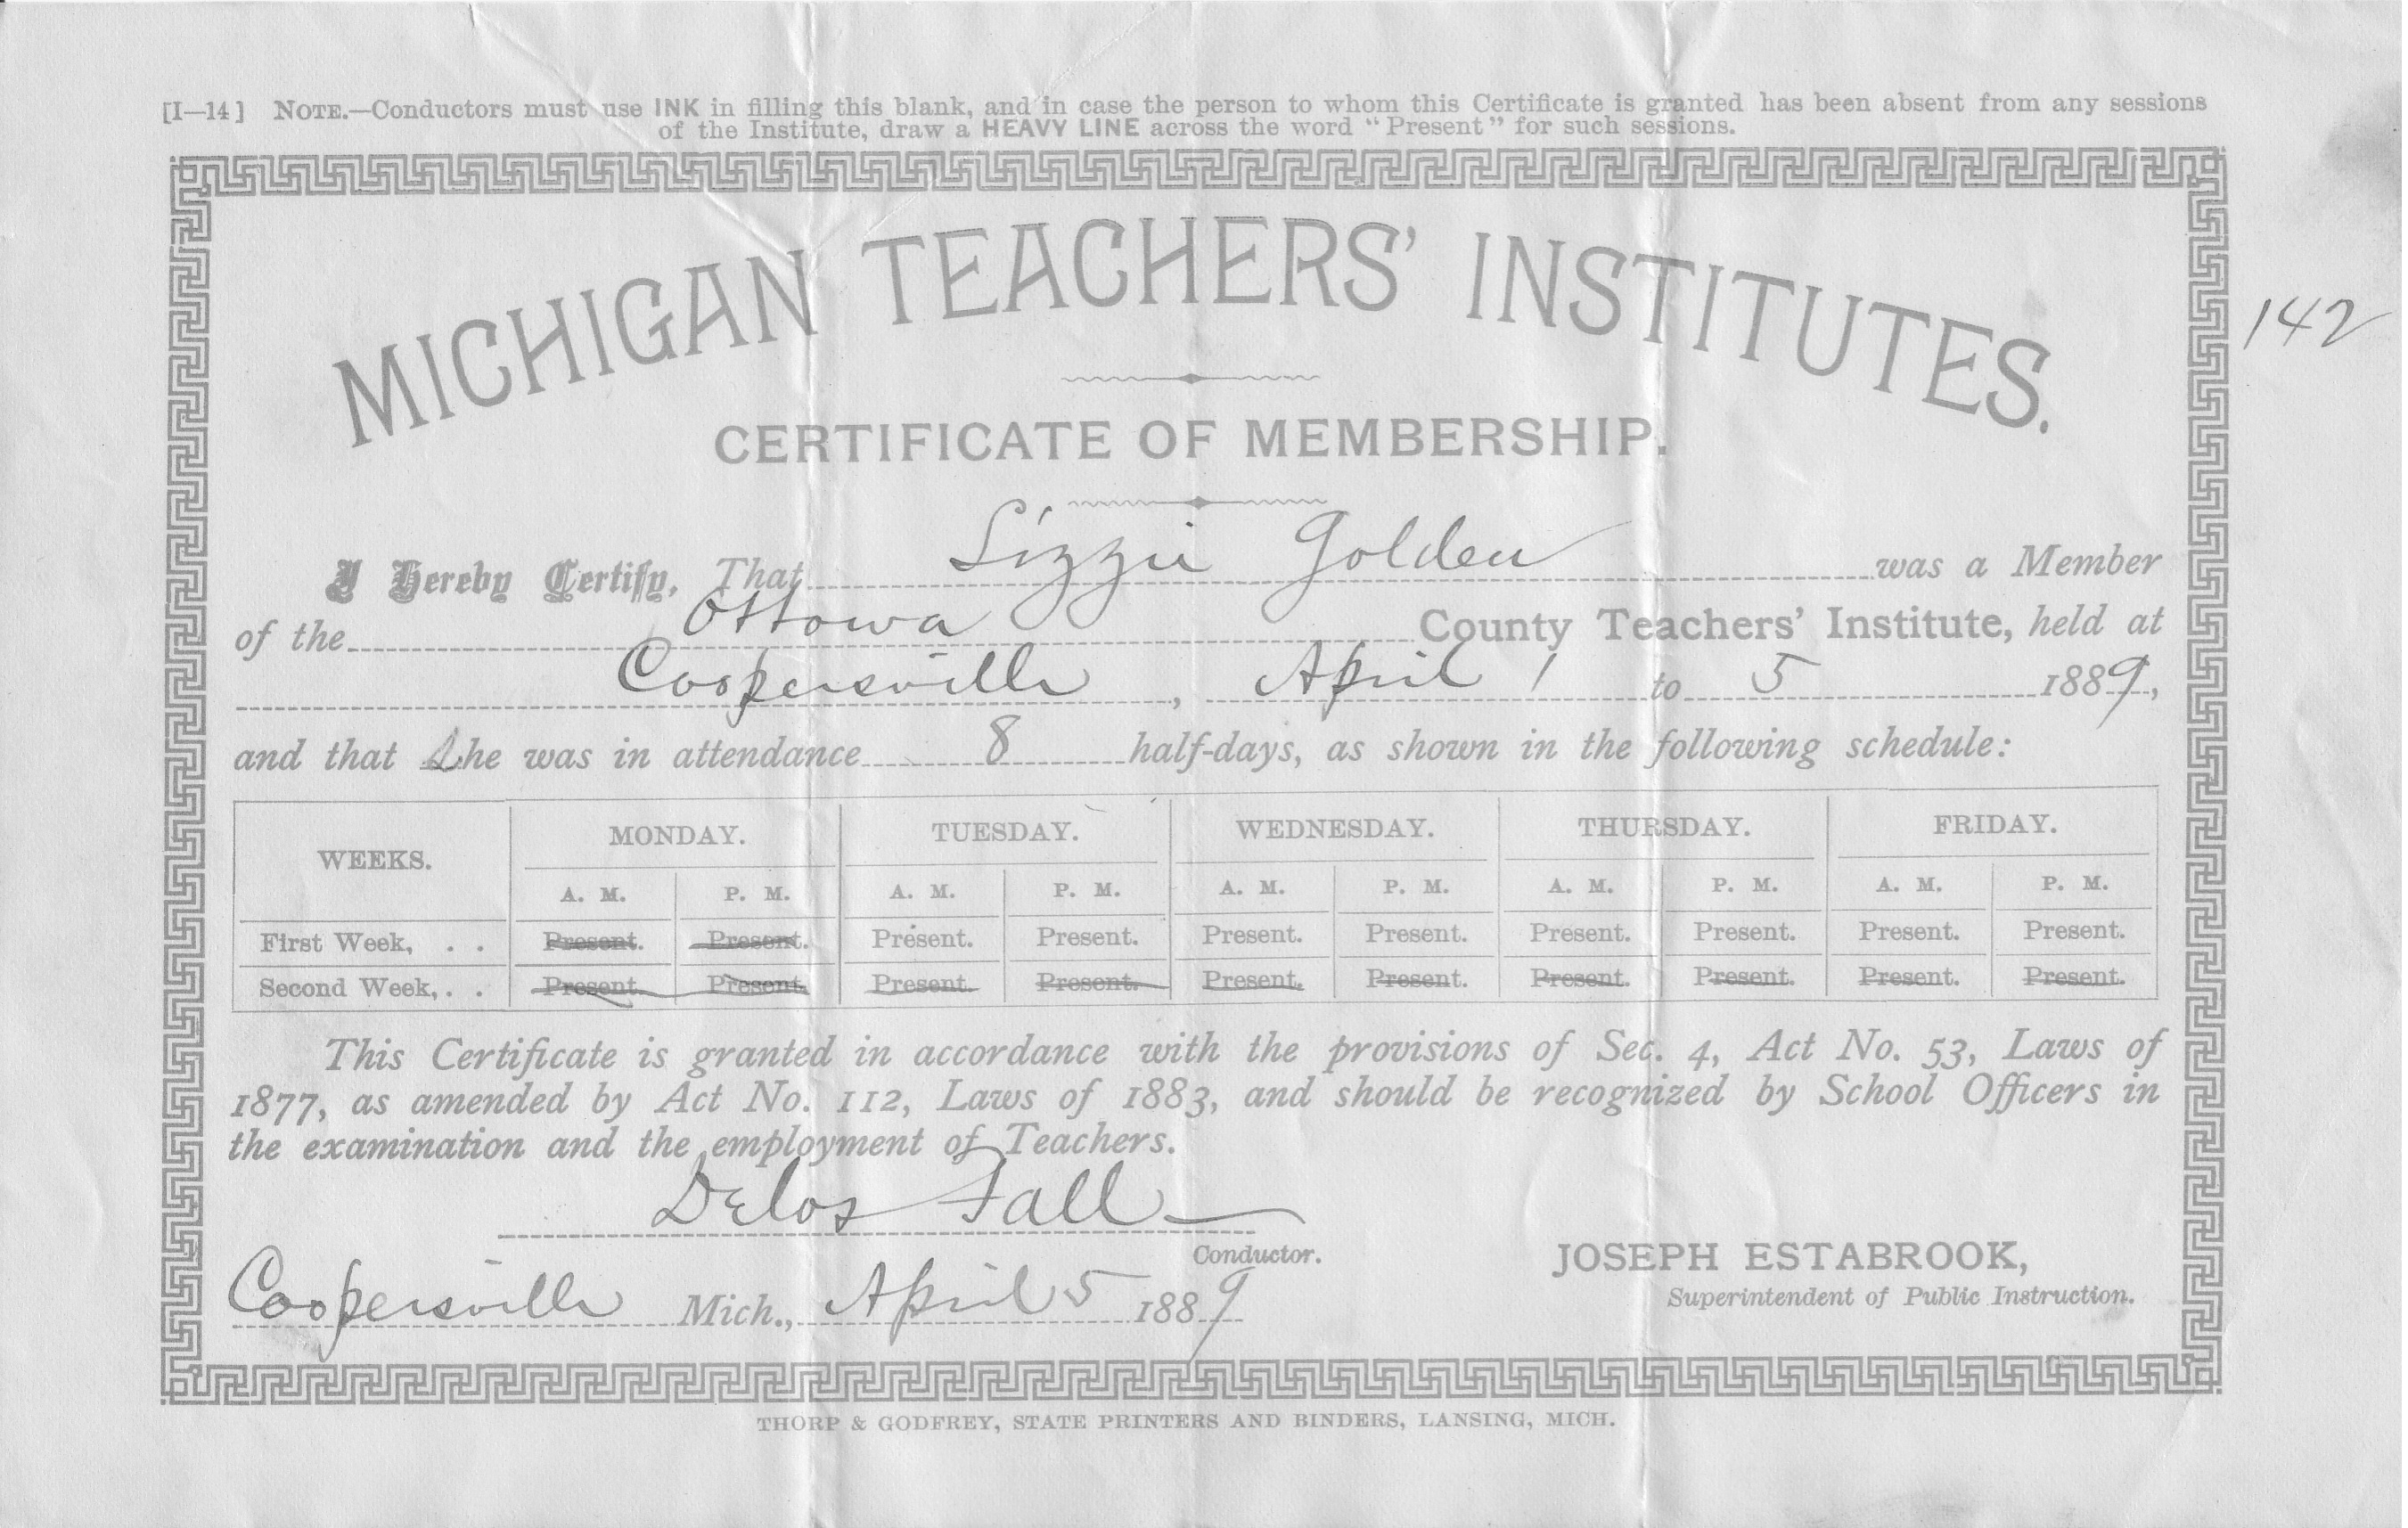 [I—14] NOTE.—Conductors must use INK in filling this blank, and in case the person to whom this Certificate is granted has been absent from any sessions
of the Institute, draw a HEAVY LINE across the word "Present" for such sessions.
MICHIGAN TEACHERS' INSTITUTES.
142
CERTIFICATE OF MEMBERSHIP.
I Hereby Certify, That Lizzie Golden was a Member
of the Ottowa County Teachers' Institute, held at
Coopersville, April 1 to 5 1889,
and that She was in attendance 8 half-days, as shown in the following schedule:
WEEKS. MONDAY. TUESDAY. WEDNESDAY. THURSDAY. FRIDAY.
A. M. P. M. A. M. P. M. A. M. P. M. A. M. P. M. A. M. P. M.
First Week, . . Present. Present. Present. Present. Present. Present. Present. Present. Present. Present.
Second Week, . . Present. Present. Present. Present. Present. Present. Present. Present. Present. Present.
This Certificate is granted in accordance with the provisions of Sec. 4, Act No. 53, Laws of
1877, as amended by Act No. 112, Laws of 1883, and should be recognized by School Officers in
the examination and the employment of Teachers.
Delos Fall
Conductor.
Coopersville Mich., April 5 1889
JOSEPH ESTABROOK,
Superintendent of Public Instruction.
THORP & GODFREY, STATE PRINTERS AND BINDERS, LANSING, MICH.